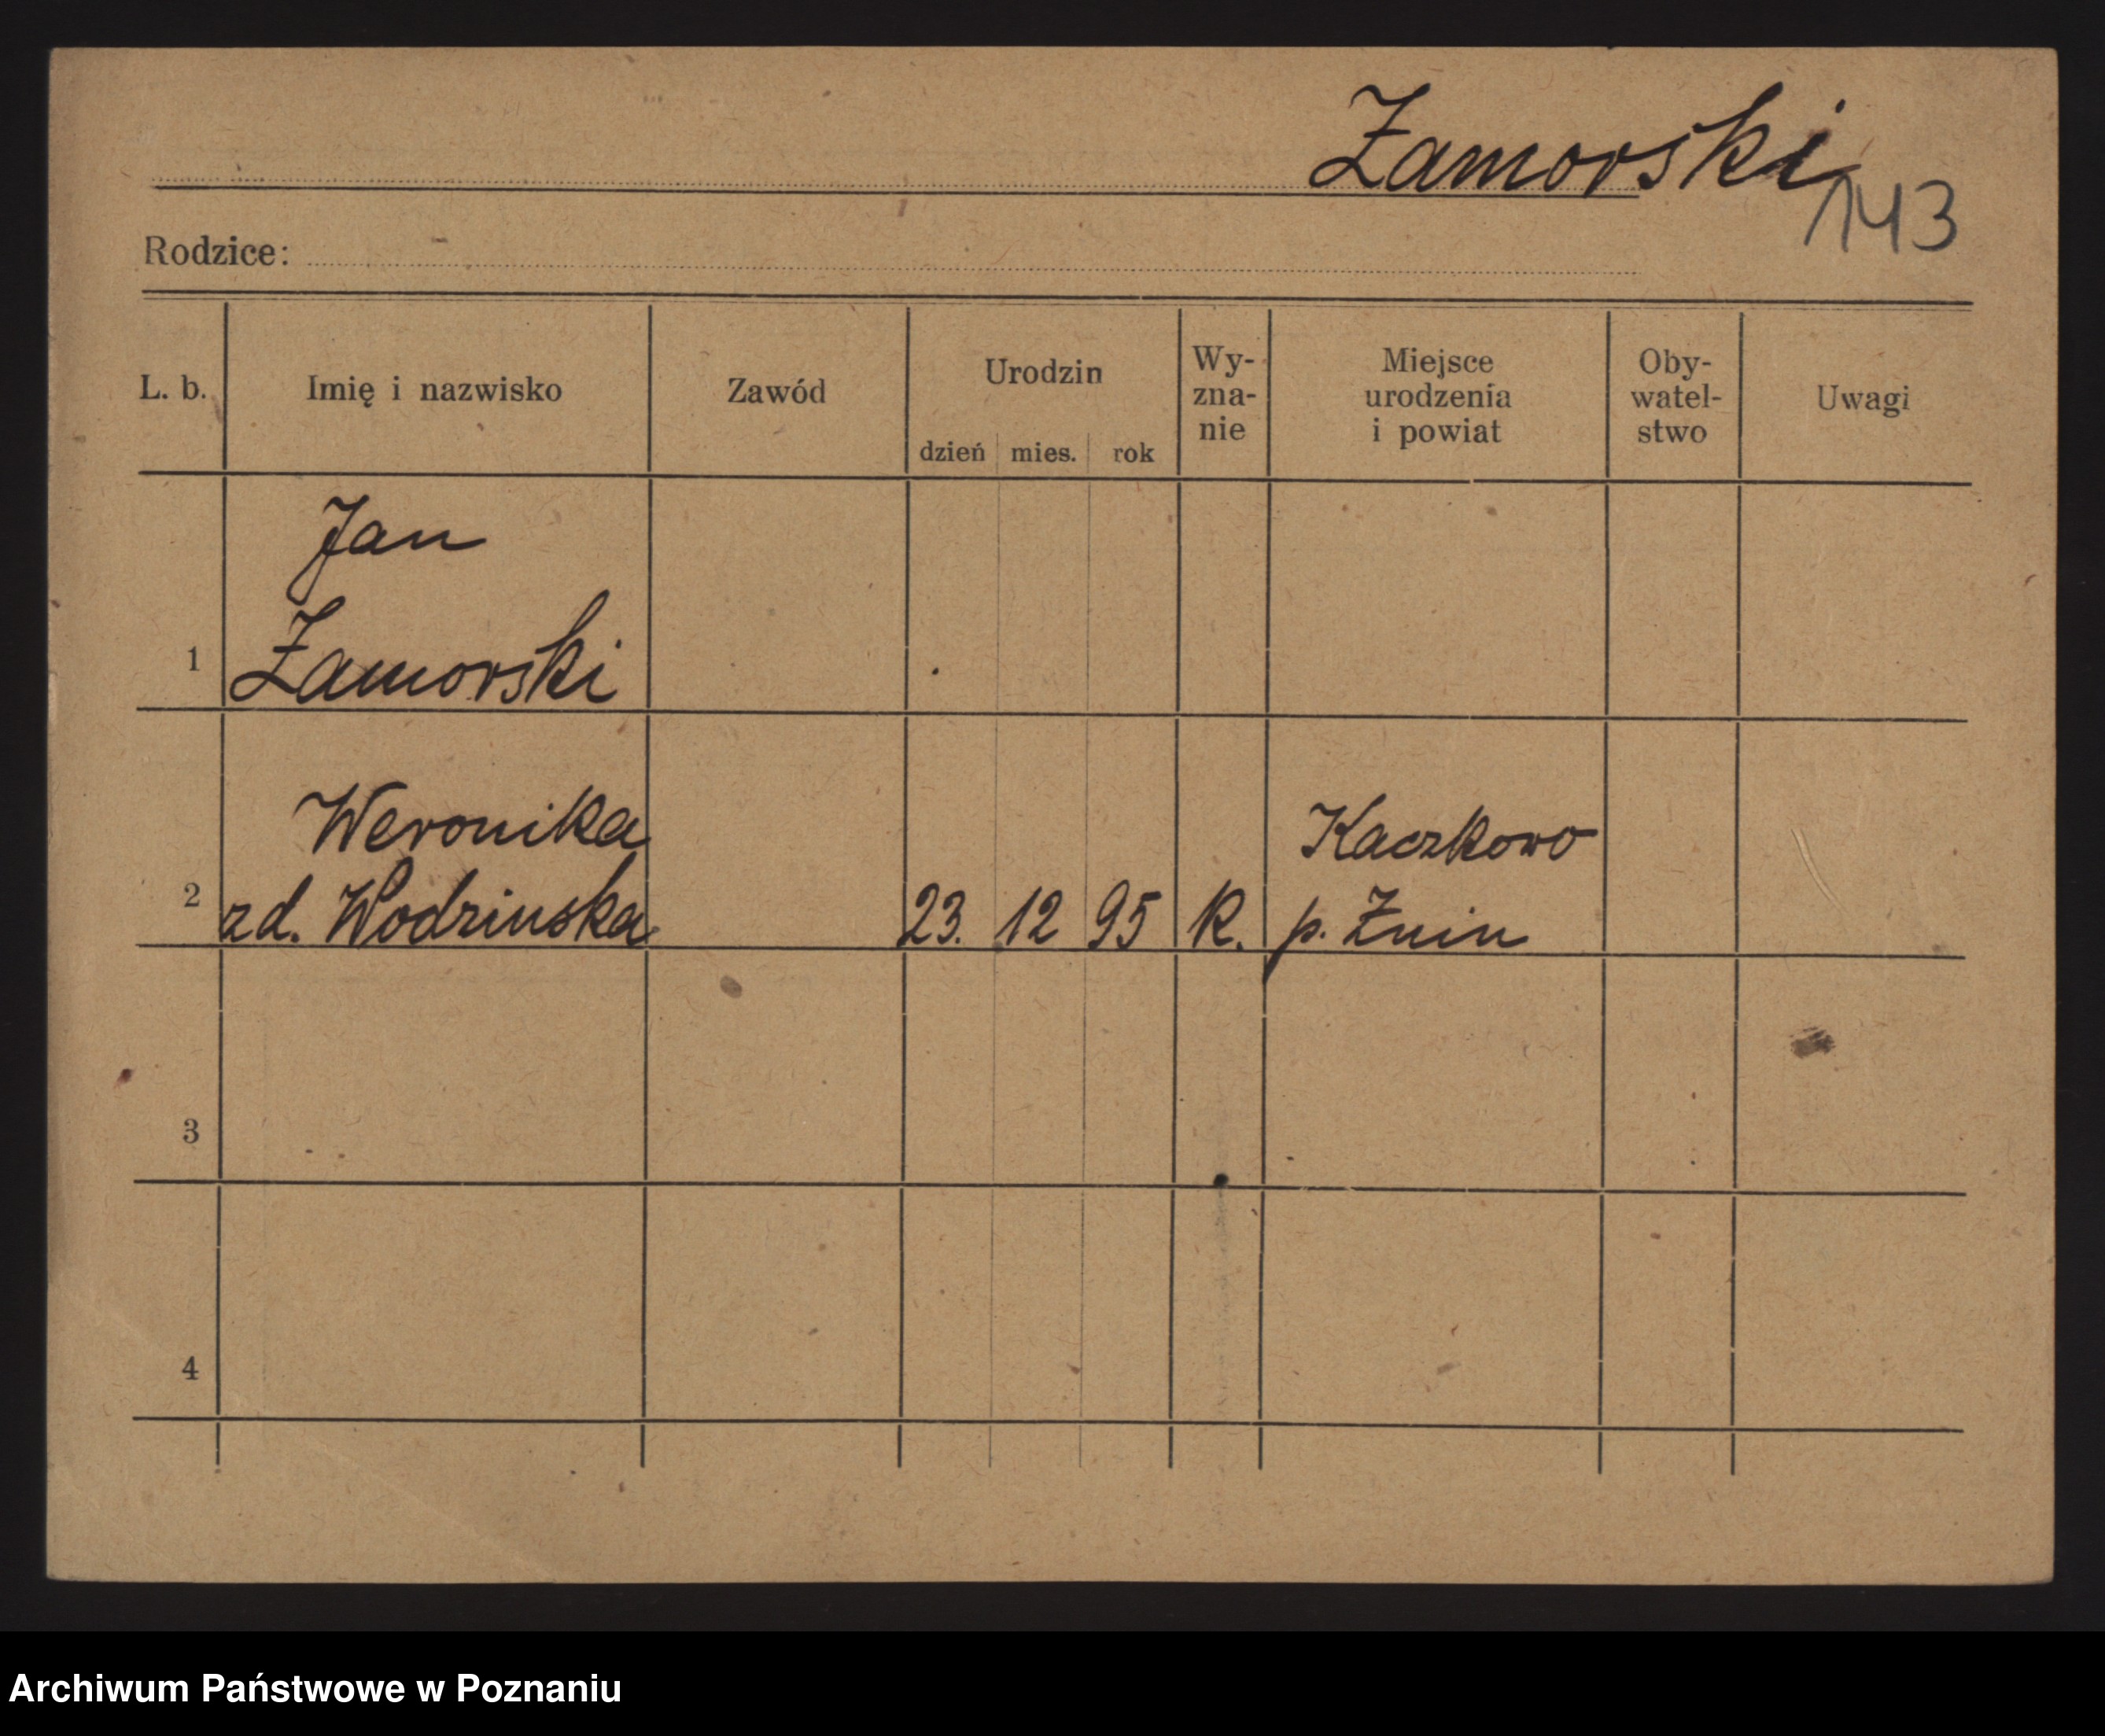 Zamorski
143
Rodzice:
L. b.
Imię i nazwisko
Zawód
Urodzin
dzień mies. rok
Wy-
zna-
nie
Miejsce
urodzenia
i powiat
Oby-
watel-
stwo
Uwagi
Jan
1 Zamorski
Weronika Kaczkowo
2 zd. Wodzinska 23. 12 95 R. p. Żnin
3
4
Archiwum Państwowe w Poznaniu